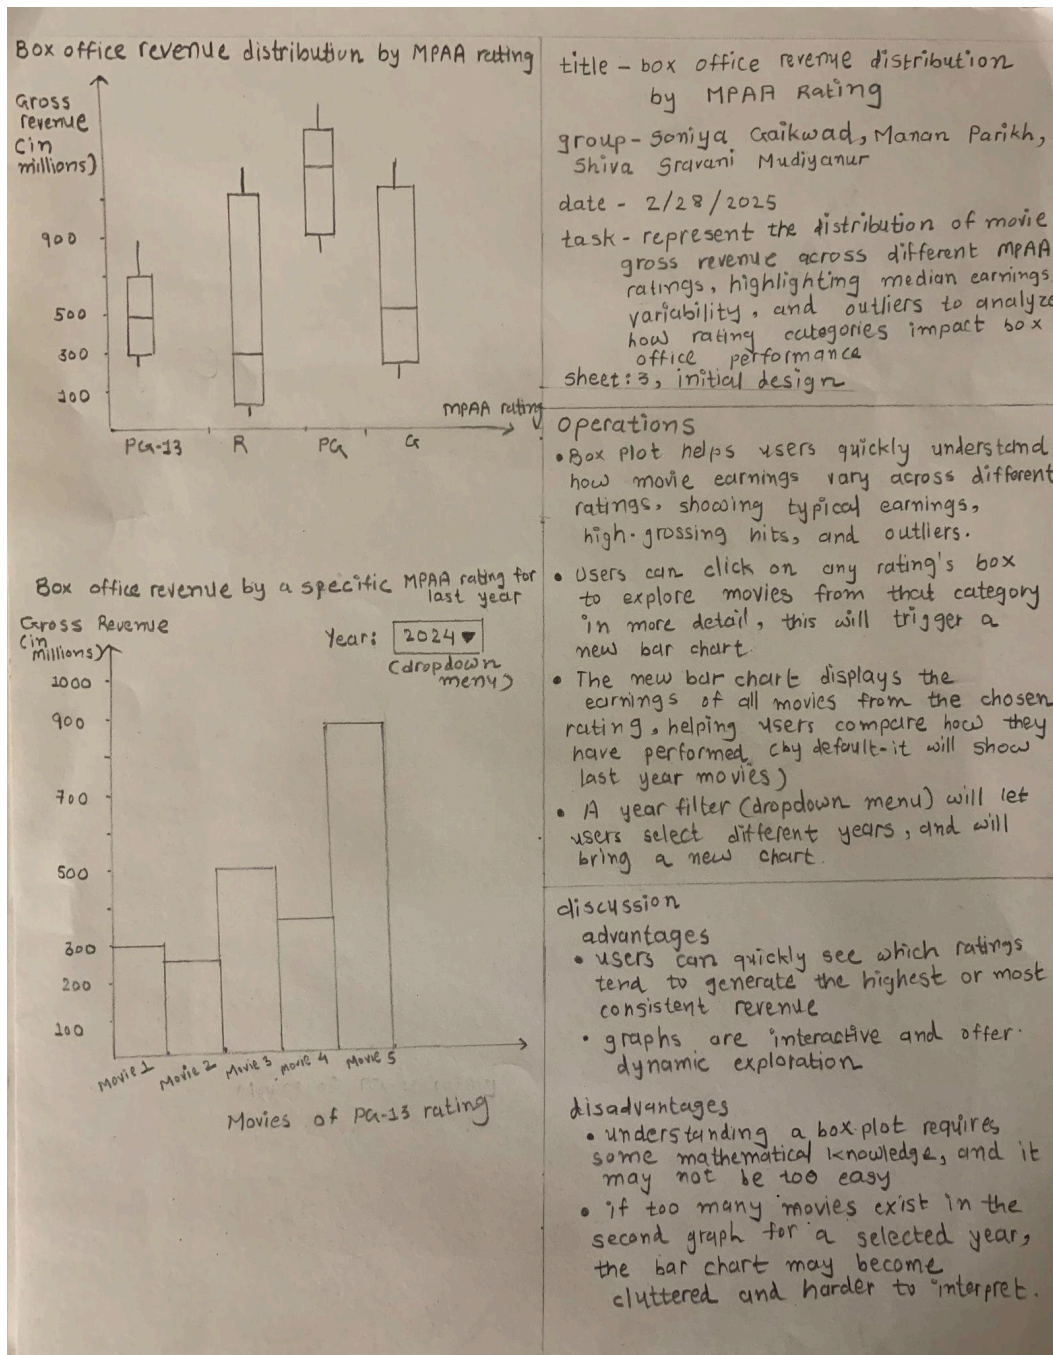 Box office revenue distribution by MPAA rating
Gross
revenue
(in
millions)
900
500
300
100
MPAA rating
PG-13
R
PG
G
Box office revenue by a specific MPAA rating for
last year
Gross Revenue
(in
millions)
Year: 2024
(dropdown
menu)
1000
900
700
500
300
200
100
Movie 1
Movie 2
Movie 3
Movie 4
Movie 5
Movies of PG-13 rating
title - box office revenue distribution
by MPAA Rating
group - Soniya Gaikwad, Manan Parikh,
Shiva Sravani Mudiyanur
date - 2/28/2025
task - represent the distribution of movie
gross revenue across different MPAA
ratings, highlighting median earnings,
variability, and outliers to analyze
how rating categories impact box
office performance
sheet: 3, initial design
operations
• Box plot helps users quickly understand
how movie earnings vary across different
ratings, showing typical earnings,
high-grossing hits, and outliers.
• Users can click on any rating's box
to explore movies from that category
in more detail, this will trigger a
new bar chart.
• The new bar chart displays the
earnings of all movies from the chosen
rating, helping users compare how they
have performed (by default-it will show
last year movies)
• A year filter (dropdown menu) will let
users select different years, and will
bring a new chart.
discussion
advantages
• users can quickly see which ratings
tend to generate the highest or most
consistent revenue
• graphs are interactive and offer
dynamic exploration
disadvantages
• understanding a box-plot requires
some mathematical knowledge, and it
may not be too easy
• if too many movies exist in the
second graph for a selected year,
the bar chart may become
cluttered and harder to interpret.